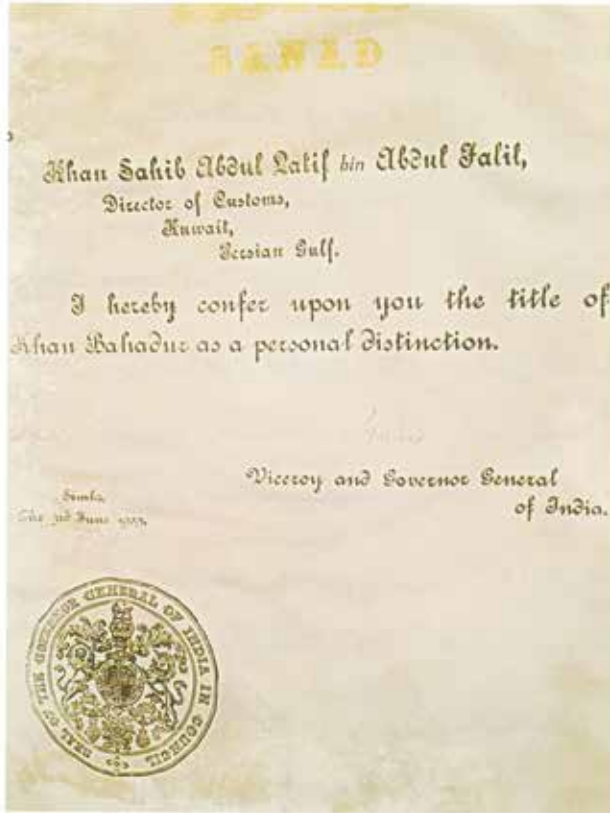 SANAD
Khan Sahib Abdul Latif bin Abdul Jalil,
Director of Customs,
Kuwait,
Persian Gulf.
I hereby confer upon you the title of
Khan Bahadur as a personal distinction.
Viceroy and Governor General
of India.
Simla,
The June
SEAL OF THE GOVERNOR GENERAL OF INDIA IN COUNCIL